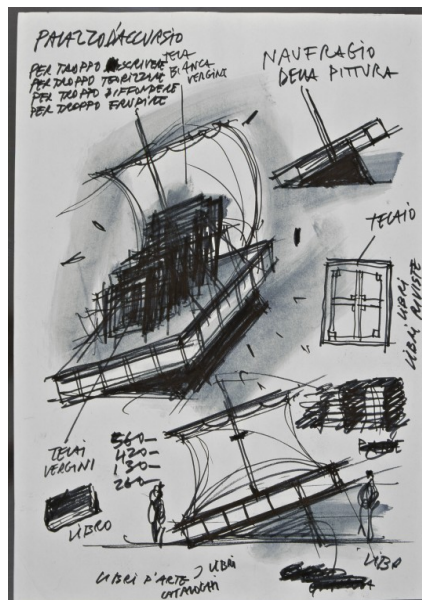 PALAZZO D'ACCURSIO
PER TROPPO SCRIVERE
PER TROPPO TEORIZZARE
PER TROPPO DIFFONDERE
PER TROPPO ERUDIRE
TELA
BIANCA
VERGINI
NAUFRAGIO
DELLA PITTURA
TELAIO
LIBRI LIBRI
LIBRI RIVISTE
TELAI
VERGINI
560-
420-
130-
260-
LIBRO
LIBRO
LIBRI D'ARTE
LIBRI
CATALOGHI